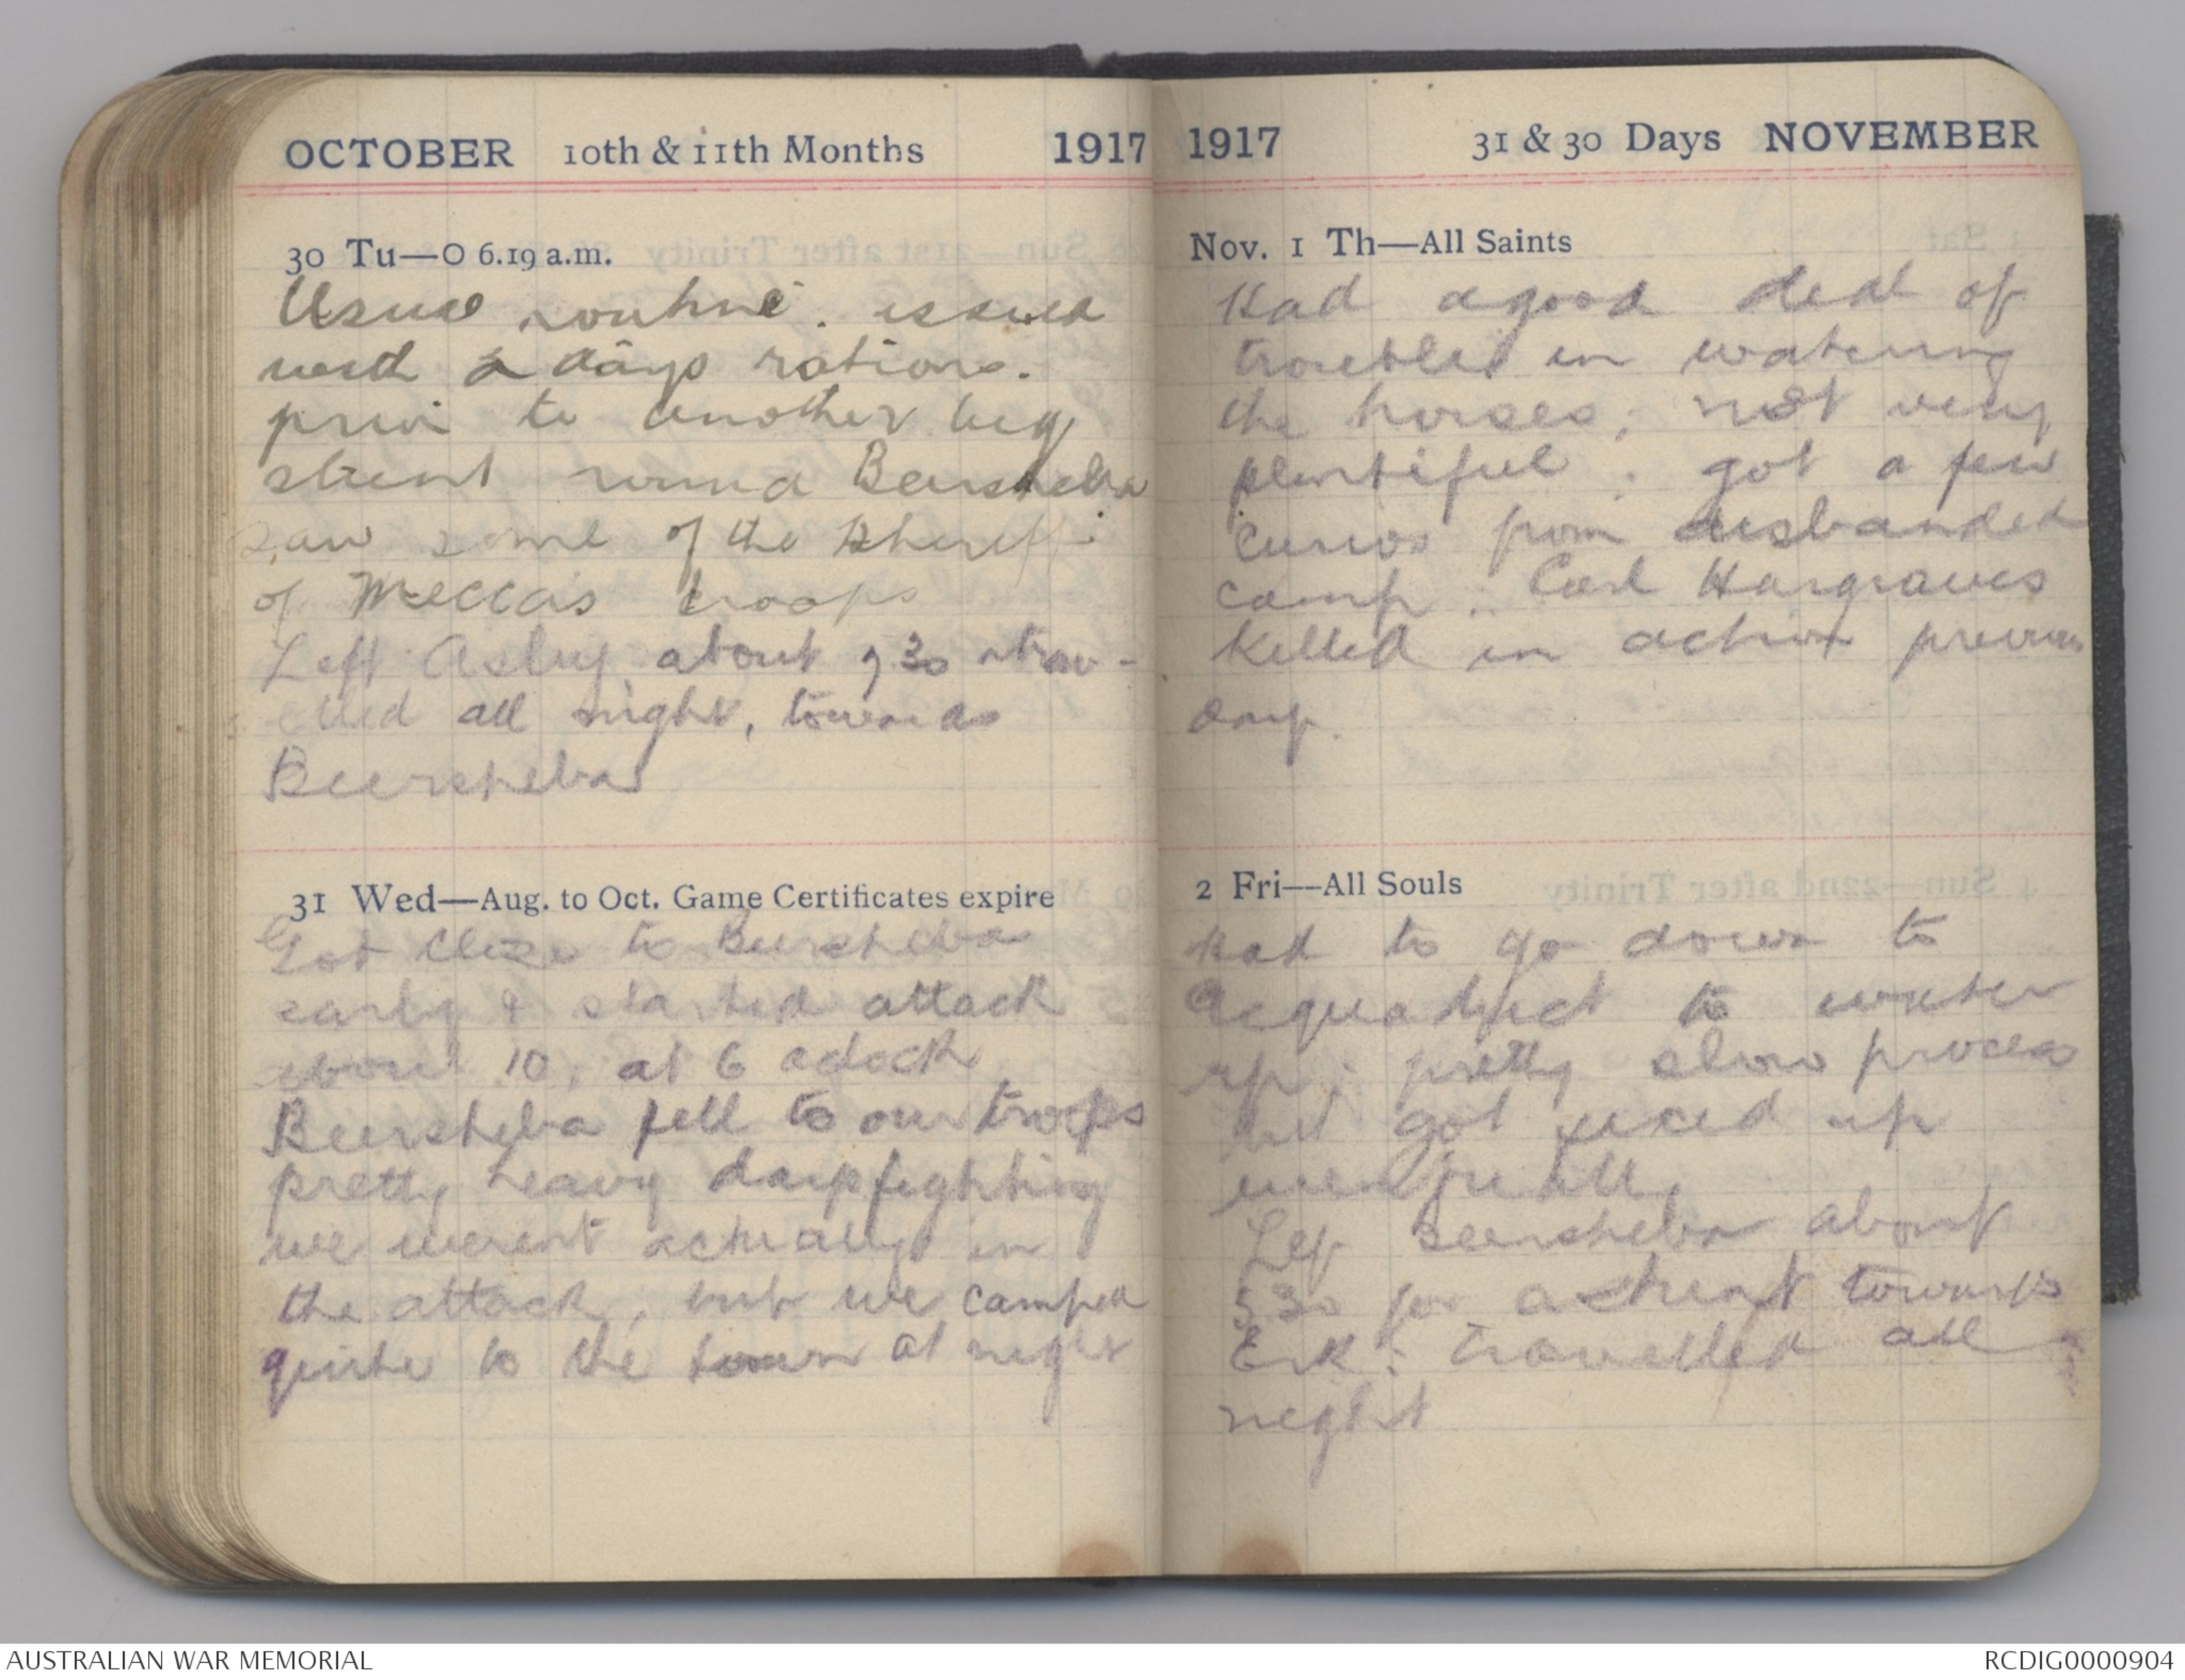 OCTOBER 10th & 11th Months 1917
30 Tu—O 6.19 a.m.
Usual routine. issued
with 2 days rations.
prior to another big
stunt round Beersheba
saw some of the Shereff
of Mecca's troops
Left Asluj about 7 30 & trav-
elled all night, towards
Beersheba
31 Wed—Aug. to Oct. Game Certificates expire
Got close to Beersheba
early & started attack
about 10, at 6 oclock
Beersheba fell to our troops
pretty heavy days fighting
we werent actually in
the attack, but we camped
quite to the town at night
1917 31 & 30 Days NOVEMBER
Nov. 1 Th—All Saints
Had a good deal of
trouble in watering
the horses; not very
plentiful; got a few
curios from disbanded
camp. Hargraves
killed in action previous
day.
2 Fri—All Souls
Had to go down to
Acquaduct to water
up; pretty slow process
but got fixed up
eventually
Left Beersheba about
5 30 for a stunt towards
travelled all
night
AUSTRALIAN WAR MEMORIAL
RCDIG0000904